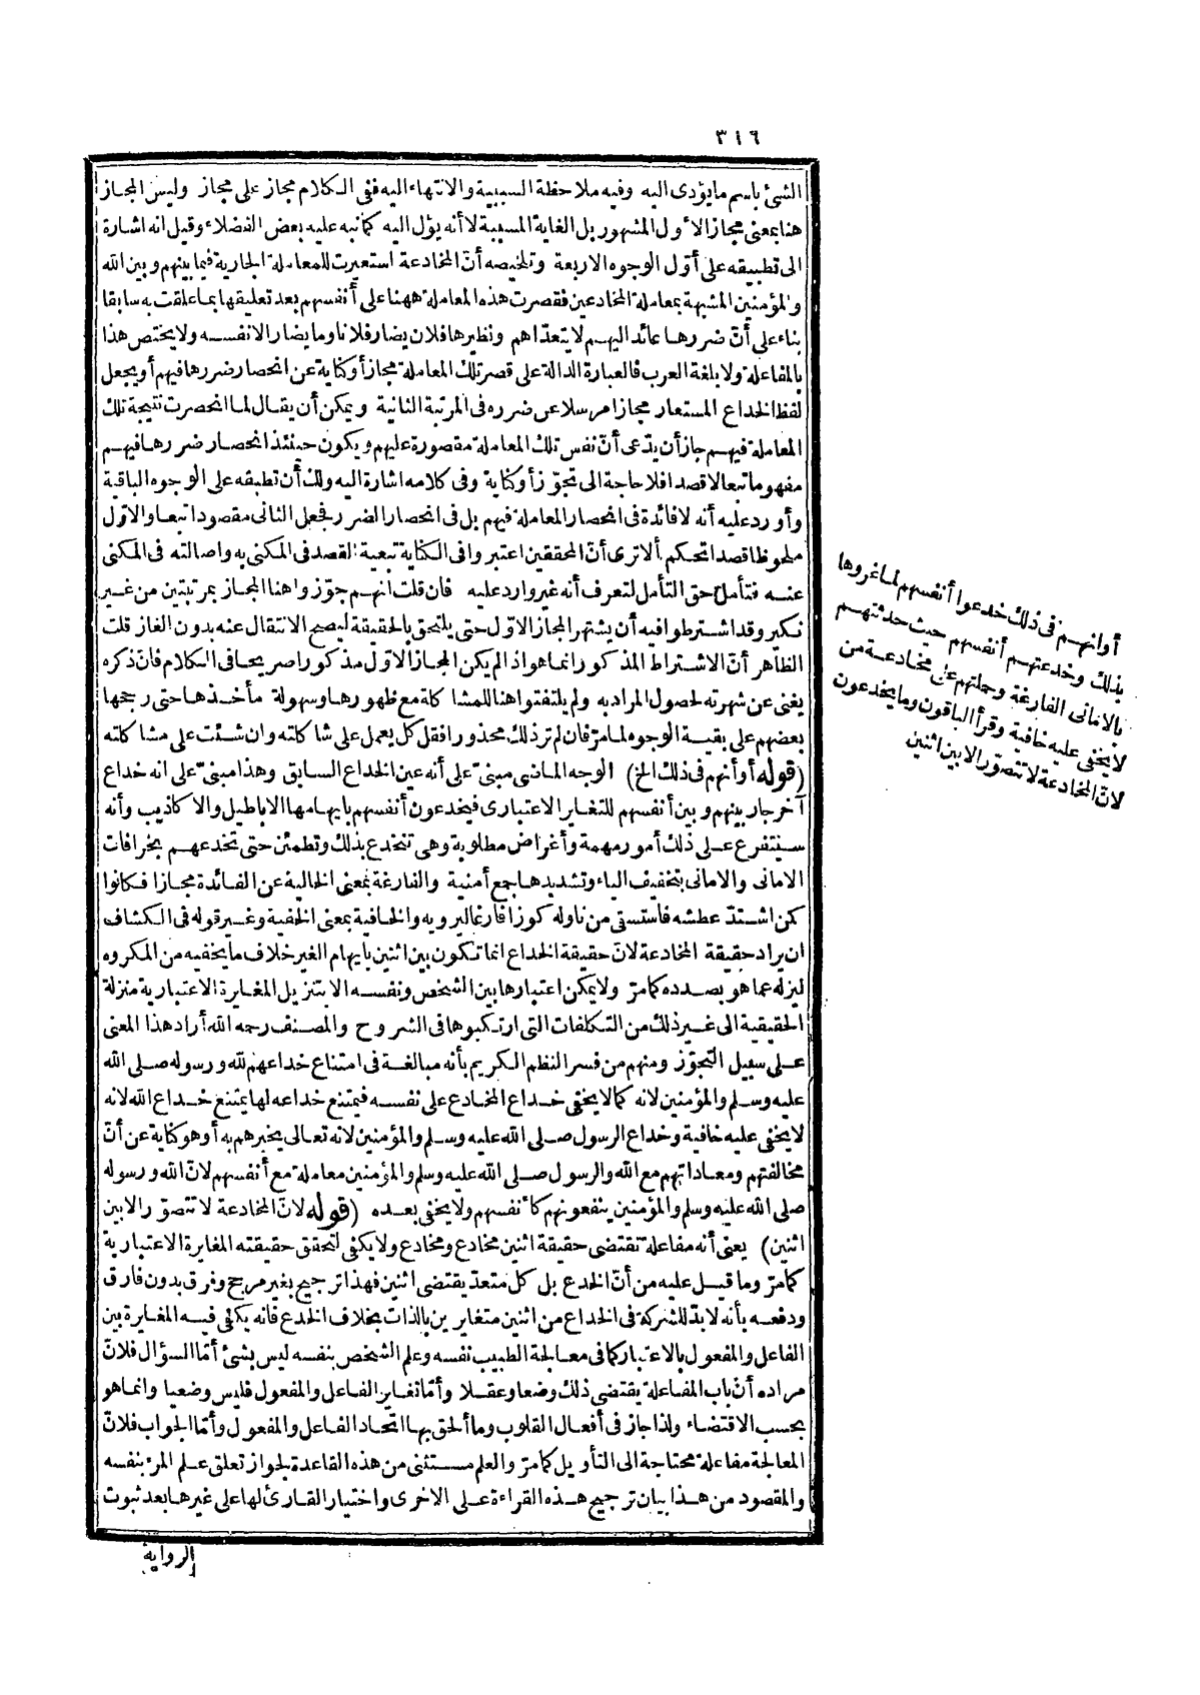 ٣١٦
الشئ باسم ما يؤدى اليه وفيه ملاحظة السببية والانتهاء اليه ففى الكلام مجاز على مجاز وليس المجاز
هنا بمعنى مجاز الأول المشهور بل الغاية المسببة لا أنه يؤل اليه كما نبه عليه بعض الفضلاء وقيل انه اشارة
الى تطبيقه على أوّل الوجوه الاربعة وتلخيصه أنّ المخادعة استعيرت للمعاملة الجارية فيما بينهم وبين الله
والمؤمنين المشبهة بمعاملة المخادعين فقصرت هذه المعاملة ههنا على أنفسهم بعد تعليقها بما علقت به سابقا
بناء على أنّ ضررها عائد اليهم لا يتعدّاهم ونظيرها فلان يضار فلانا وما يضار الا نفسه ولا يختص هذا
بالمفاعلة ولا بلغة العرب فالعبارة الدالة على قصر تلك المعاملة مجاز أو كناية عن انحصار ضررها فيهم أو يجعل
لفظ الخداع المستعار مجازا مرسلا عن ضرره فى المرتبة الثانية ويمكن أن يقال لما انحصرت نتيجة تلك
المعاملة فيهم جاز أن يدّعى أنّ نفس تلك المعاملة مقصورة عليهم ويكون حينئذ انحصار ضررها فيهم
مفهوما تبعا لا قصدا فلا حاجة الى تجوّز أو كناية وفى كلامه اشارة اليه ولك أن تطبقه على الوجوه الباقية
وأورد عليه أنه لا فائدة فى انحصار المعاملة فيهم بل فى انحصار الضرر فجعل الثانى مقصودا تبعا والاوّل
ملحوظا قصدا تحكم ألا ترى أنّ المحققين اعتبروا فى الكناية تبعية القصد فى المكنى به واصالته فى المكنى
عنه فتأمل حق التأمل لتعرف أنه غير وارد عليه فان قلت انهم جوّزوا هنا المجاز بمرتبتين من غير
نكير وقد اشترطوا فيه أن يشتهر المجاز الاوّل حتى يلتحق بالحقيقة ليصح الانتقال عنه بدون الغاز قلت
الظاهر أنّ الاشتراط المذكور انما هو اذا لم يكن المجاز الاوّل مذكورا صريحا فى الكلام فانّ ذكره
يغنى عن شهرته لحصول المراد به ولم يلتفتوا هنا للمشاكلة مع ظهورها وسهولة مأخذها حتى رجحها
بعضهم على بقية الوجوه لما مرّ فان لم تر ذلك محذورا فقل كل يعمل على شاكلته وان شئت على مشاكلته
(قوله أو أنهم فى ذلك الخ) الوجه الماضى مبنىّ على أنه عين الخداع السابق وهذا مبنىّ على انه خداع
آخر جار بينهم وبين أنفسهم للتغاير الاعتبارى فيخدعون أنفسهم بايهامها الاباطيل والاكاذيب وأنه
سيتفرع على ذلك أمور مهمة وأغراض مطلوبة وهى تنخدع بذلك وتطمئن حتى تخدعهم بخرافات
الامانى والامانى بتخفيف الياء وتشديدها جمع أمنية والفارغة بمعنى الخالية عن الفائدة مجازا فكانوا
كمن اشتدّ عطشه فاستسقى من ناوله كوزا فارغا ليرويه والخافية بمعنى الخفية وغير قوله فى الكشاف
ان يراد حقيقة المخادعة لانّ حقيقة الخداع انما تكون بين اثنين بايهام الغير خلاف ما يخفيه من المكروه
ليزله عما هو بصدده كما مرّ ولا يمكن اعتبارها بين الشخص ونفسه الا بتنزيل المغايرة الاعتبارية منزلة
الحقيقية الى غير ذلك من التكلفات التى ارتكبوها فى الشروح والمصنف رحمه الله أراد هذا المعنى
على سبيل التجوّز ومنهم من فسر النظم الكريم بأنه مبالغة فى امتناع خداعهم لله ورسوله صلى الله
عليه وسلم والمؤمنين لانه كما لا يخفى خداع المخادع على نفسه فيمتنع خداعه لها يمتنع خداع الله لانه
لا يخفى عليه خافية وخداع الرسول صلى الله عليه وسلم والمؤمنين لانه تعالى يخبرهم به أو هو كناية عن أنّ
مخالفتهم ومعاداتهم مع الله والرسول صلى الله عليه وسلم والمؤمنين معاملة مع أنفسهم لانّ الله ورسوله
صلى الله عليه وسلم والمؤمنين ينفعونهم كأنفسهم ولا يخفى بعده (قوله لانّ المخادعة لا تتصوّر الا بين
اثنين) يعنى أنه مفاعلة تقتضى حقيقة اثنين مخادع ومخادع ولا يكفى لتحقق حقيقته المغايرة الاعتبارية
كما مرّ وما قيل عليه من أنّ الخدع بل كل متعدّ يقتضى اثنين فهذا ترجيح بغير مرجح وفرق بدون فارق
ودفعه بأنه لا بدّ للشركة فى الخداع من اثنين متغايرين بالذات بخلاف الخدع فانه يكفى فيه المغايرة بين
الفاعل والمفعول بالاعتبار كما فى معالجة الطبيب نفسه وعلم الشخص بنفسه ليس بشئ أمّا السؤال فلانّ
مراده أنّ باب المفاعلة يقتضى ذلك وضعا وعقلا وأمّا تغاير الفاعل والمفعول فليس وضعيا وانما هو
بحسب الاقتضاء ولذا جاز فى أفعال القلوب وما ألحق بها اتحاد الفاعل والمفعول وأمّا الجواب فلانّ
المعالجة مفاعلة محتاجة الى التأويل كما مرّ والعلم مستثنى من هذه القاعدة لجواز تعلق علم المرء بنفسه
والمقصود من هذا بيان ترجيح هذه القراءة على الاخرى واختيار القارئ لها على غيرها بعد ثبوت
الرواية
أو انهم فى ذلك خدعوا أنفسهم لما غروها
بذلك وخدعتهم أنفسهم حيث حدثتهم
بالامانى الفارغة وحملتهم على مخادعة من
لا يخفى عليه خافية وقرأ الباقون وما يخدعون
لانّ المخادعة لا تتصوّر الا بين اثنين